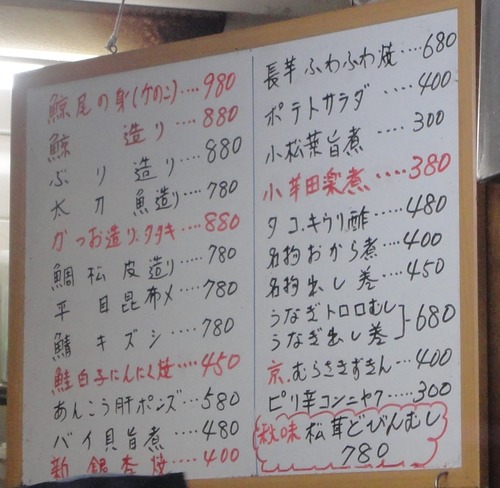 鯨尾の身(ケのこ)....980
鯨 造り...880
ぶり造り...880
太刀魚造り...780
かつお造り.タタキ...880
鯛松皮造り...780
平目昆布〆...780
鯖キズシ...780
鮭白子にんにく焼...450
あんこう肝ポンズ...580
バイ貝旨煮...480
新銀杏焼...400
長芋ふわふわ焼....680
ポテトサラダ...400
小松菜旨煮...300
小芋田楽煮.....380
タコ.キウリ酢.....480
名物おから煮...400
名物出し巻...450
うなぎトロロむし
うなぎ出し巻 680
京.むらさきずきん...400
ピリ辛コンニャク...300
秋味 松茸どびんむし
780